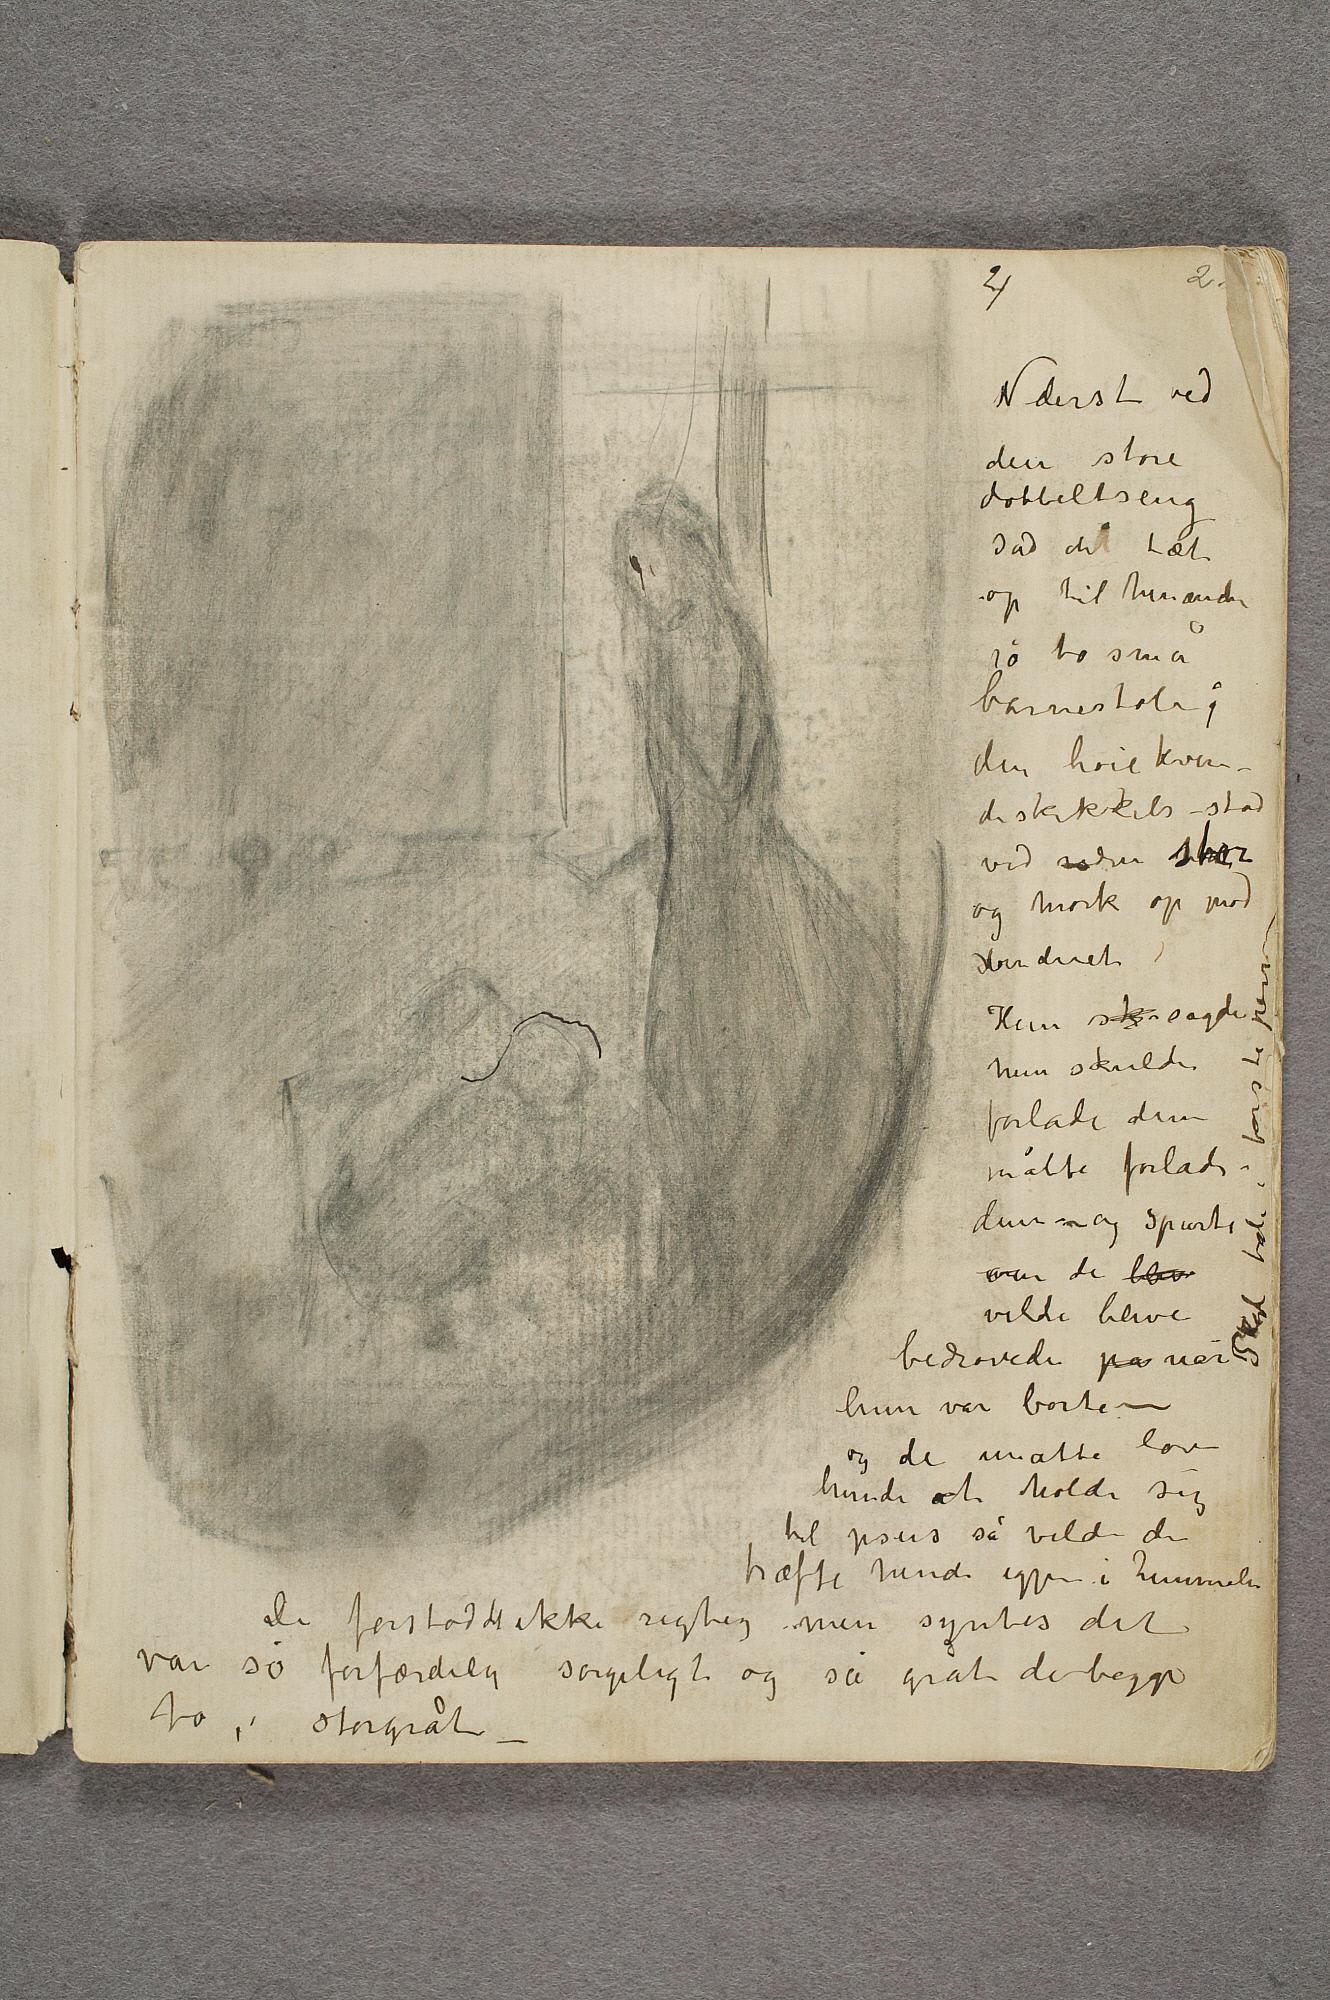 2
2.
Nderst ved
den store
dobbeltseng
sad det tæt
op til hinande
på to små
barnestole;
den høie kvin-
deskikkels stod
ved siden stor
og mørk op mod
vinduet
Hun sk sagde
hun skulde
forlade dem
måtte forlade
dem – og spurte
om de blev
vilde blive
bedrøvede på når
hun var borte –
og de måtte love
hende at holde sig
til Jesus så vilde de
træffe hende igjen i himmelen
De forstod det ikke rigtig men syntes det
var så forfærdelig sørgeligt og så gråt de begge
to, i storgråt –
Skal være i første person